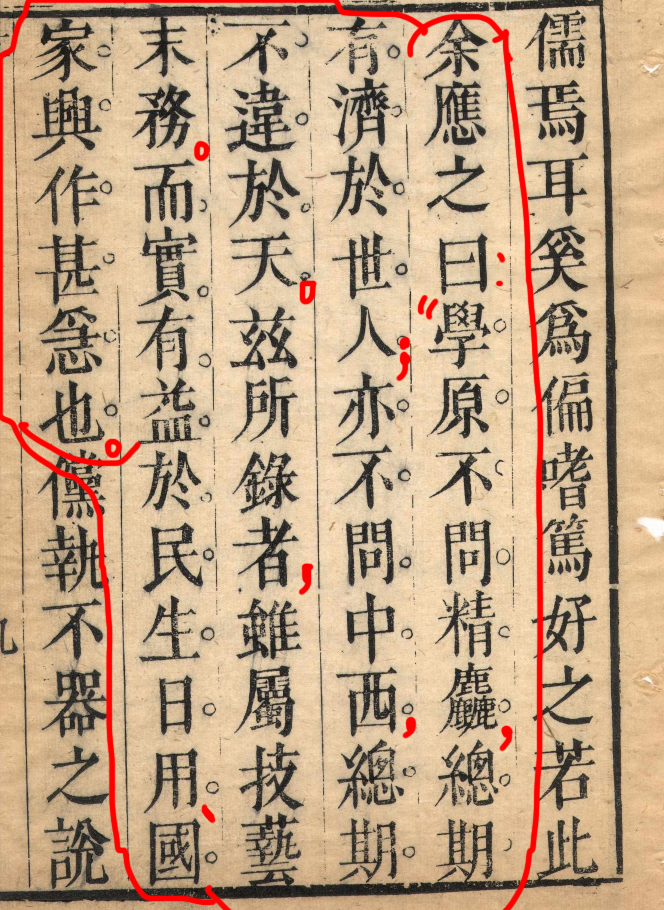 儒焉耳奚爲偏嗜篤好之若此
余應之曰：“學原不問精麤，總期
有濟於世人；亦不問中西，總期
不違於天。茲所錄者，雖屬技藝
末務。而實有益於民生日用、國
家興作甚急也。儻執不器之說